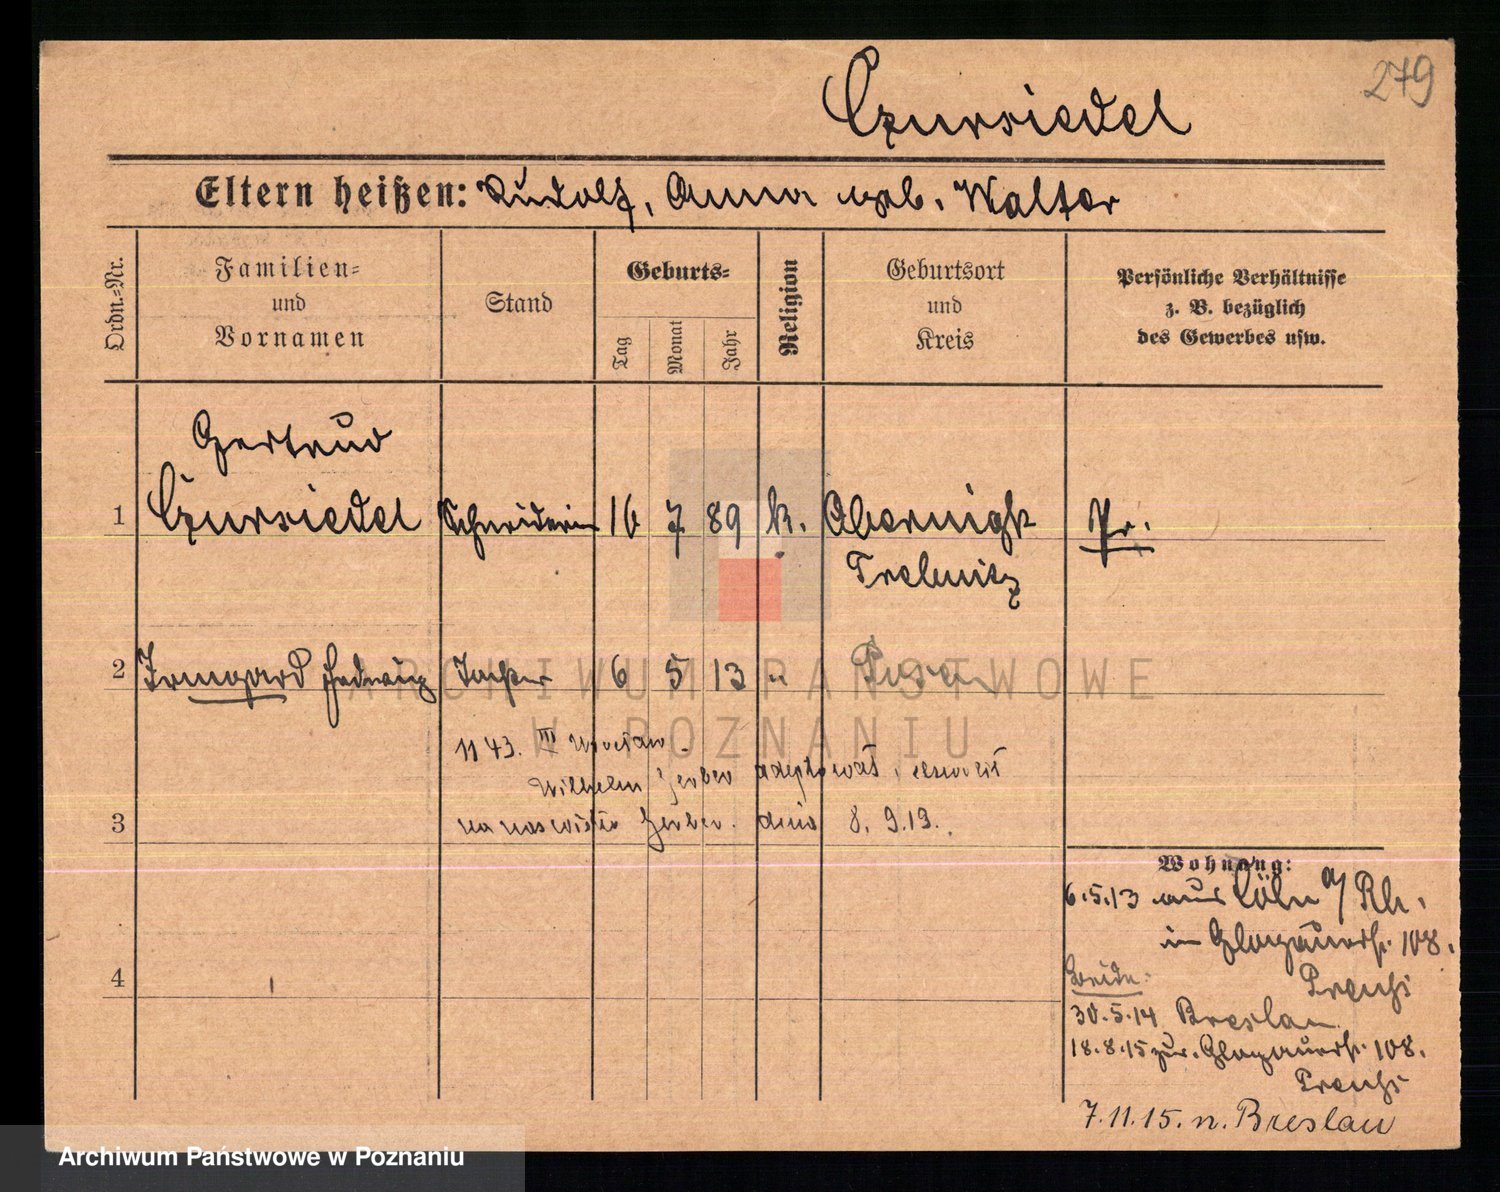 279
Czursiedel
Eltern heißen: Rudolf, Anna geb. Walter
Ordn.-Nr.
Familien-
und
Vornamen
Stand
Geburts-
Tag
Monat
Jahr
Religion
Geburtsort
und
Kreis
Persönliche Verhältnisse
z. B. bezüglich
des Gewerbes usw.
Gertrud
1 Czursiedel Schneiderin 16 7 89 k. Obernigk Pr.
Trebnitz
2 Irmgard Hedwig Tochter 6 5 13 " Posen
1143. III Wrocław
Wilhelm Gerber adoptował,
3 na nazwisko Gerber. dnia 8. 9.19.
4
Wohnung:
6.5.13 aus Cöln a/Rh.
in Glogauerstr. 108.
Beide:
30.5.14 Breslau
18.8.15 zur. Glogauerstr. 108.
7.11.15. n. Breslau
ARCHIWUM PAŃSTWOWE
W POZNANIU
Archiwum Państwowe w Poznaniu